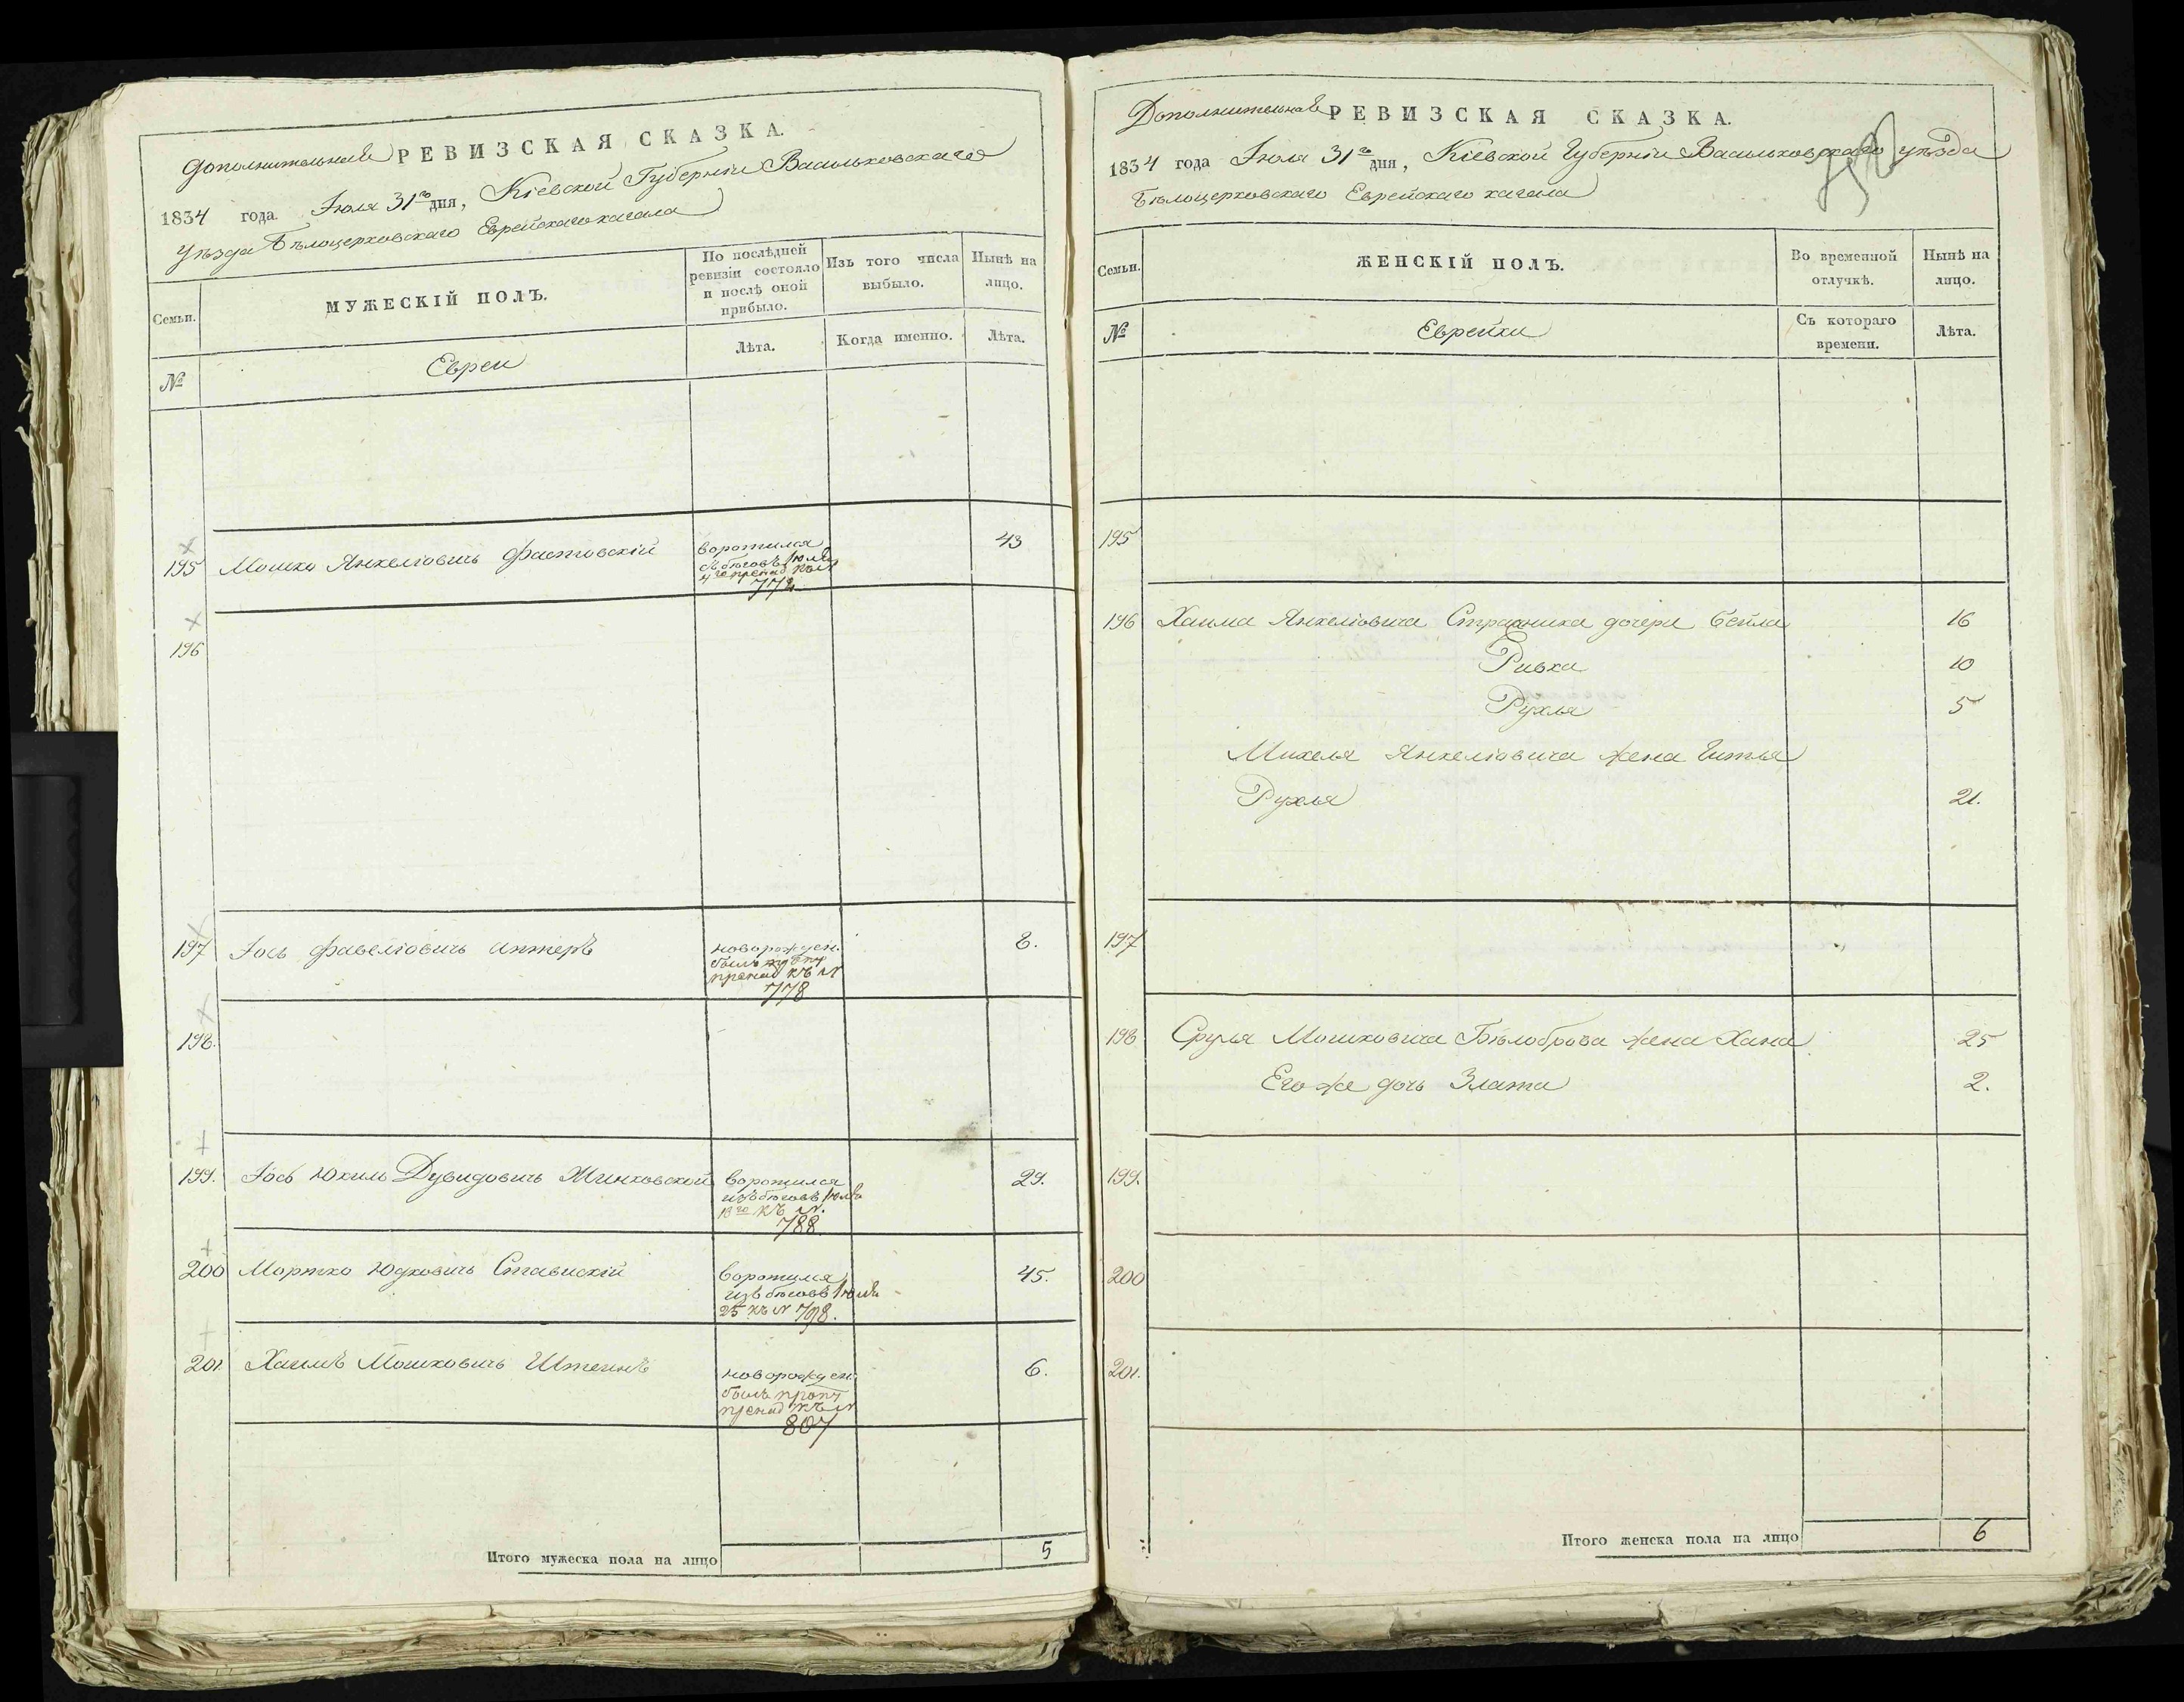 Дополнительная РЕВИЗСКАЯ СКАЗКА.
1834 года Июля 31го дня, Кіевской Губерніи Васильковскаго
уѣзда Бѣлоцерковскаго Еврейскаго кагала
Семьи.
МУЖЕСКІЙ ПОЛЪ.
По послѣдней
ревизіи состояло
и послѣ оной
прибыло.
Изъ того числа
выбыло.
Нынѣ на
лицо.
№
Евреи
Лѣта.
Когда именно.
Лѣта.
195 Мошко Янкеліовичь Фастовскій
воротился
съ бѣговъ Июля
4го къ №
772
43
196
197 Іось
новорожден.
былъ
къ №
778
8.
198.
199. Іось Юхиль Дувидовичь Минковской
воротился
изъ бѣговъ Июля
18го къ №.
788
29.
200 Мортко Юдковичь Ставискій
воротился
изъ бѣговъ Июля
25 къ № 798.
45.
201. Хаимъ Мошковичь Штеинъ
новорожден.
былъ проп
къ №
807
6.
Итого мужеска пола на лицо 5
Дополнительная РЕВИЗСКАЯ СКАЗКА.
1834 года Июля 31го дня, Кіевской Губерніи Васильковскаго уѣзда
Бѣлоцерковскаго Еврейскаго кагала
Семьи.
ЖЕНСКІЙ ПОЛЪ.
Во временной
отлучкѣ.
Нынѣ на
лицо.
№
Еврейки
Съ котораго
времени.
Лѣта.
195
196 Хаима Янкеліовича дочери Бейла 16
Ривка 10
Рухля 5
Михеля Янкеліовича жена Гитля
Рухля 21.
197
198 Сруля Мошковича Бѣлоброва жена Хана 25
Его же дочь Злата 2.
199.
200
201.
Итого женска пола на лицо 6